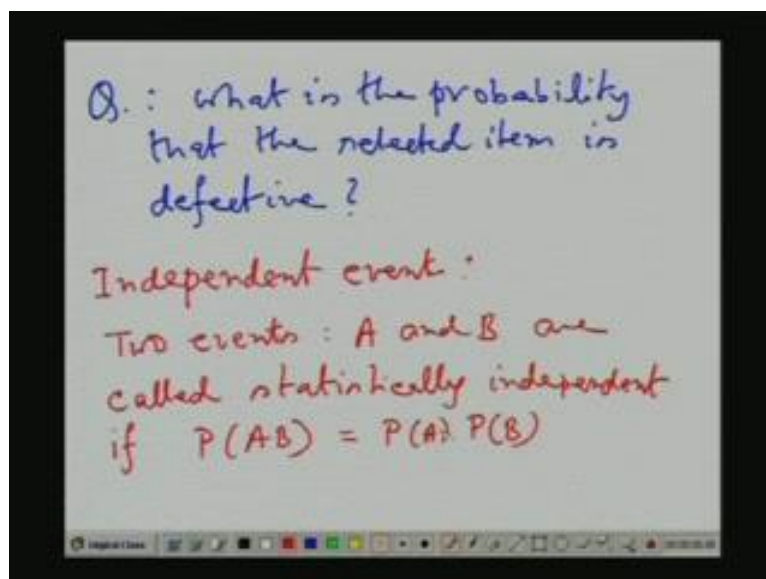 Q. : what is the probability
that the selected item is
defective ?
Independent event :
Two events : A and B are
called statistically independent
if P(AB) = P(A). P(B)